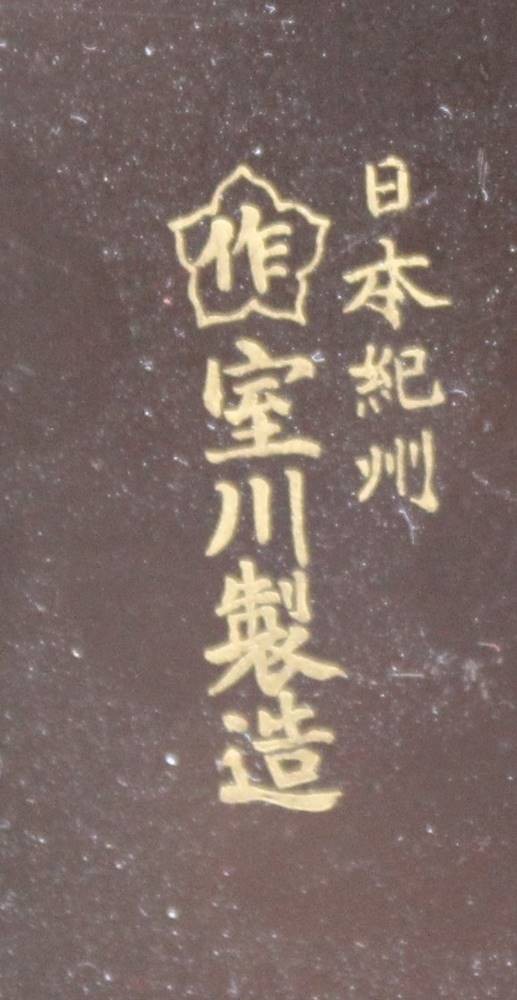 日本紀州
作室川製造